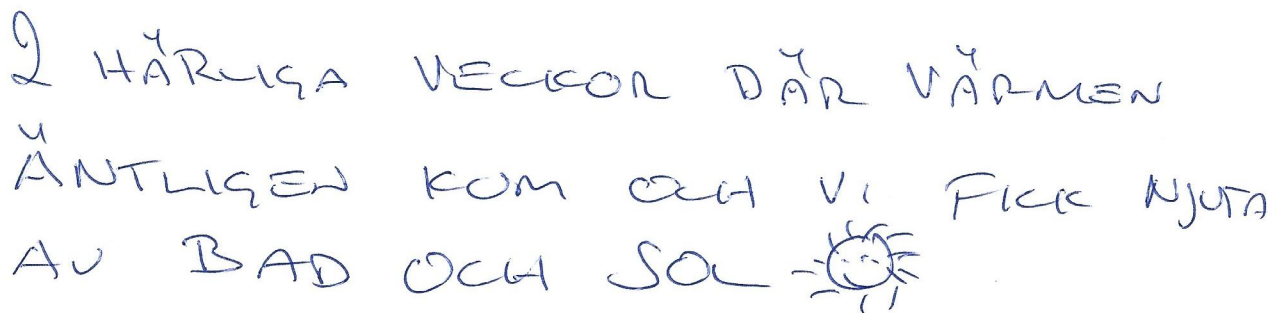 2 HÄRLIGA VECKOR DÄR VÄRMEN
ÄNTLIGEN KOM OCH VI FICK NJUTA
AV BAD OCH SOL